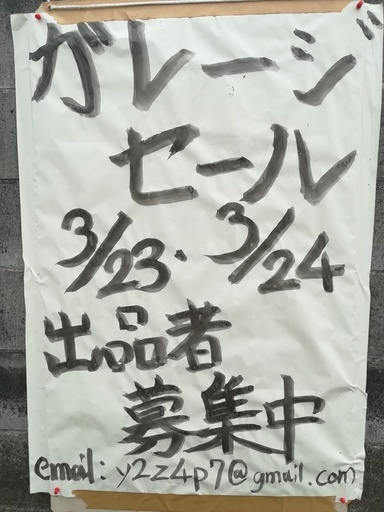 ガレージ
セール
3/23・3/24
出品者
募集中
email: y2z4p7@gmail.com